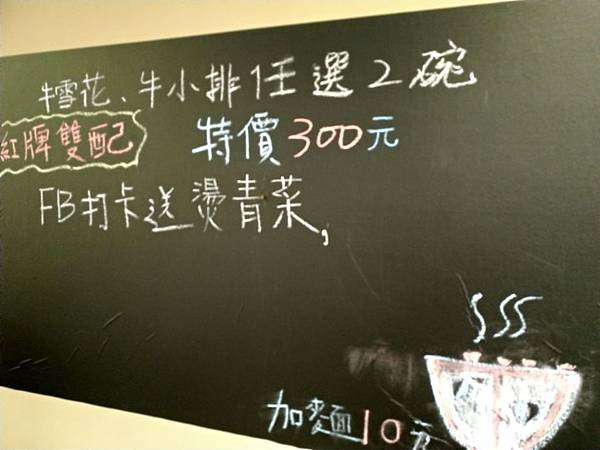 牛雪花、牛小排任選2碗
紅牌雙配 特價300元
FB打卡送燙青菜,
加麵10元